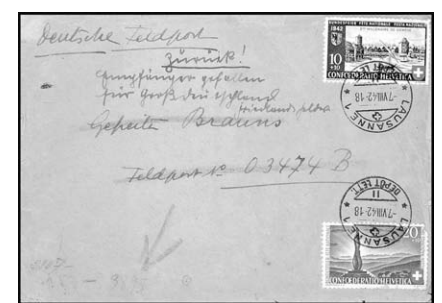 Deutsche Feldpost
Zurück!
Empfänger gefallen
für Großdeutschland
Gefreiter Brauns
Feldpost No 03474 B
1942
10
+10
CONFOEDERATIO HELVETICA
LAUSANNE 1
-7.VIII.42-18
DEPOT LETT.
LAUSANNE 1
-7.VIII.42-18
DEPOT LETT.
20
CONFOEDERATIO HELVETICA